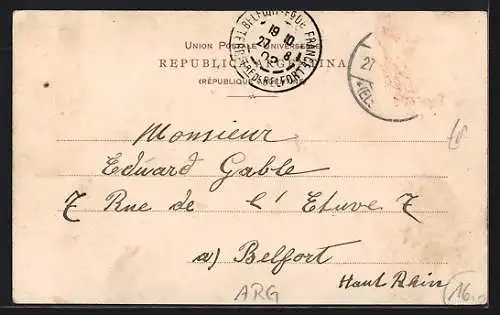 UNION POSTALE UNIVERSELLE
REPUBLICA ARGENTINA
(RÉPUBLIQUE
BELFORT
FRANCE
19 10
27 8
BELFORT
27
Monsieur
Eduard Gable
7 Rue de l'Etuve 7
a) Belfort
Haut Rhin
ARG
16